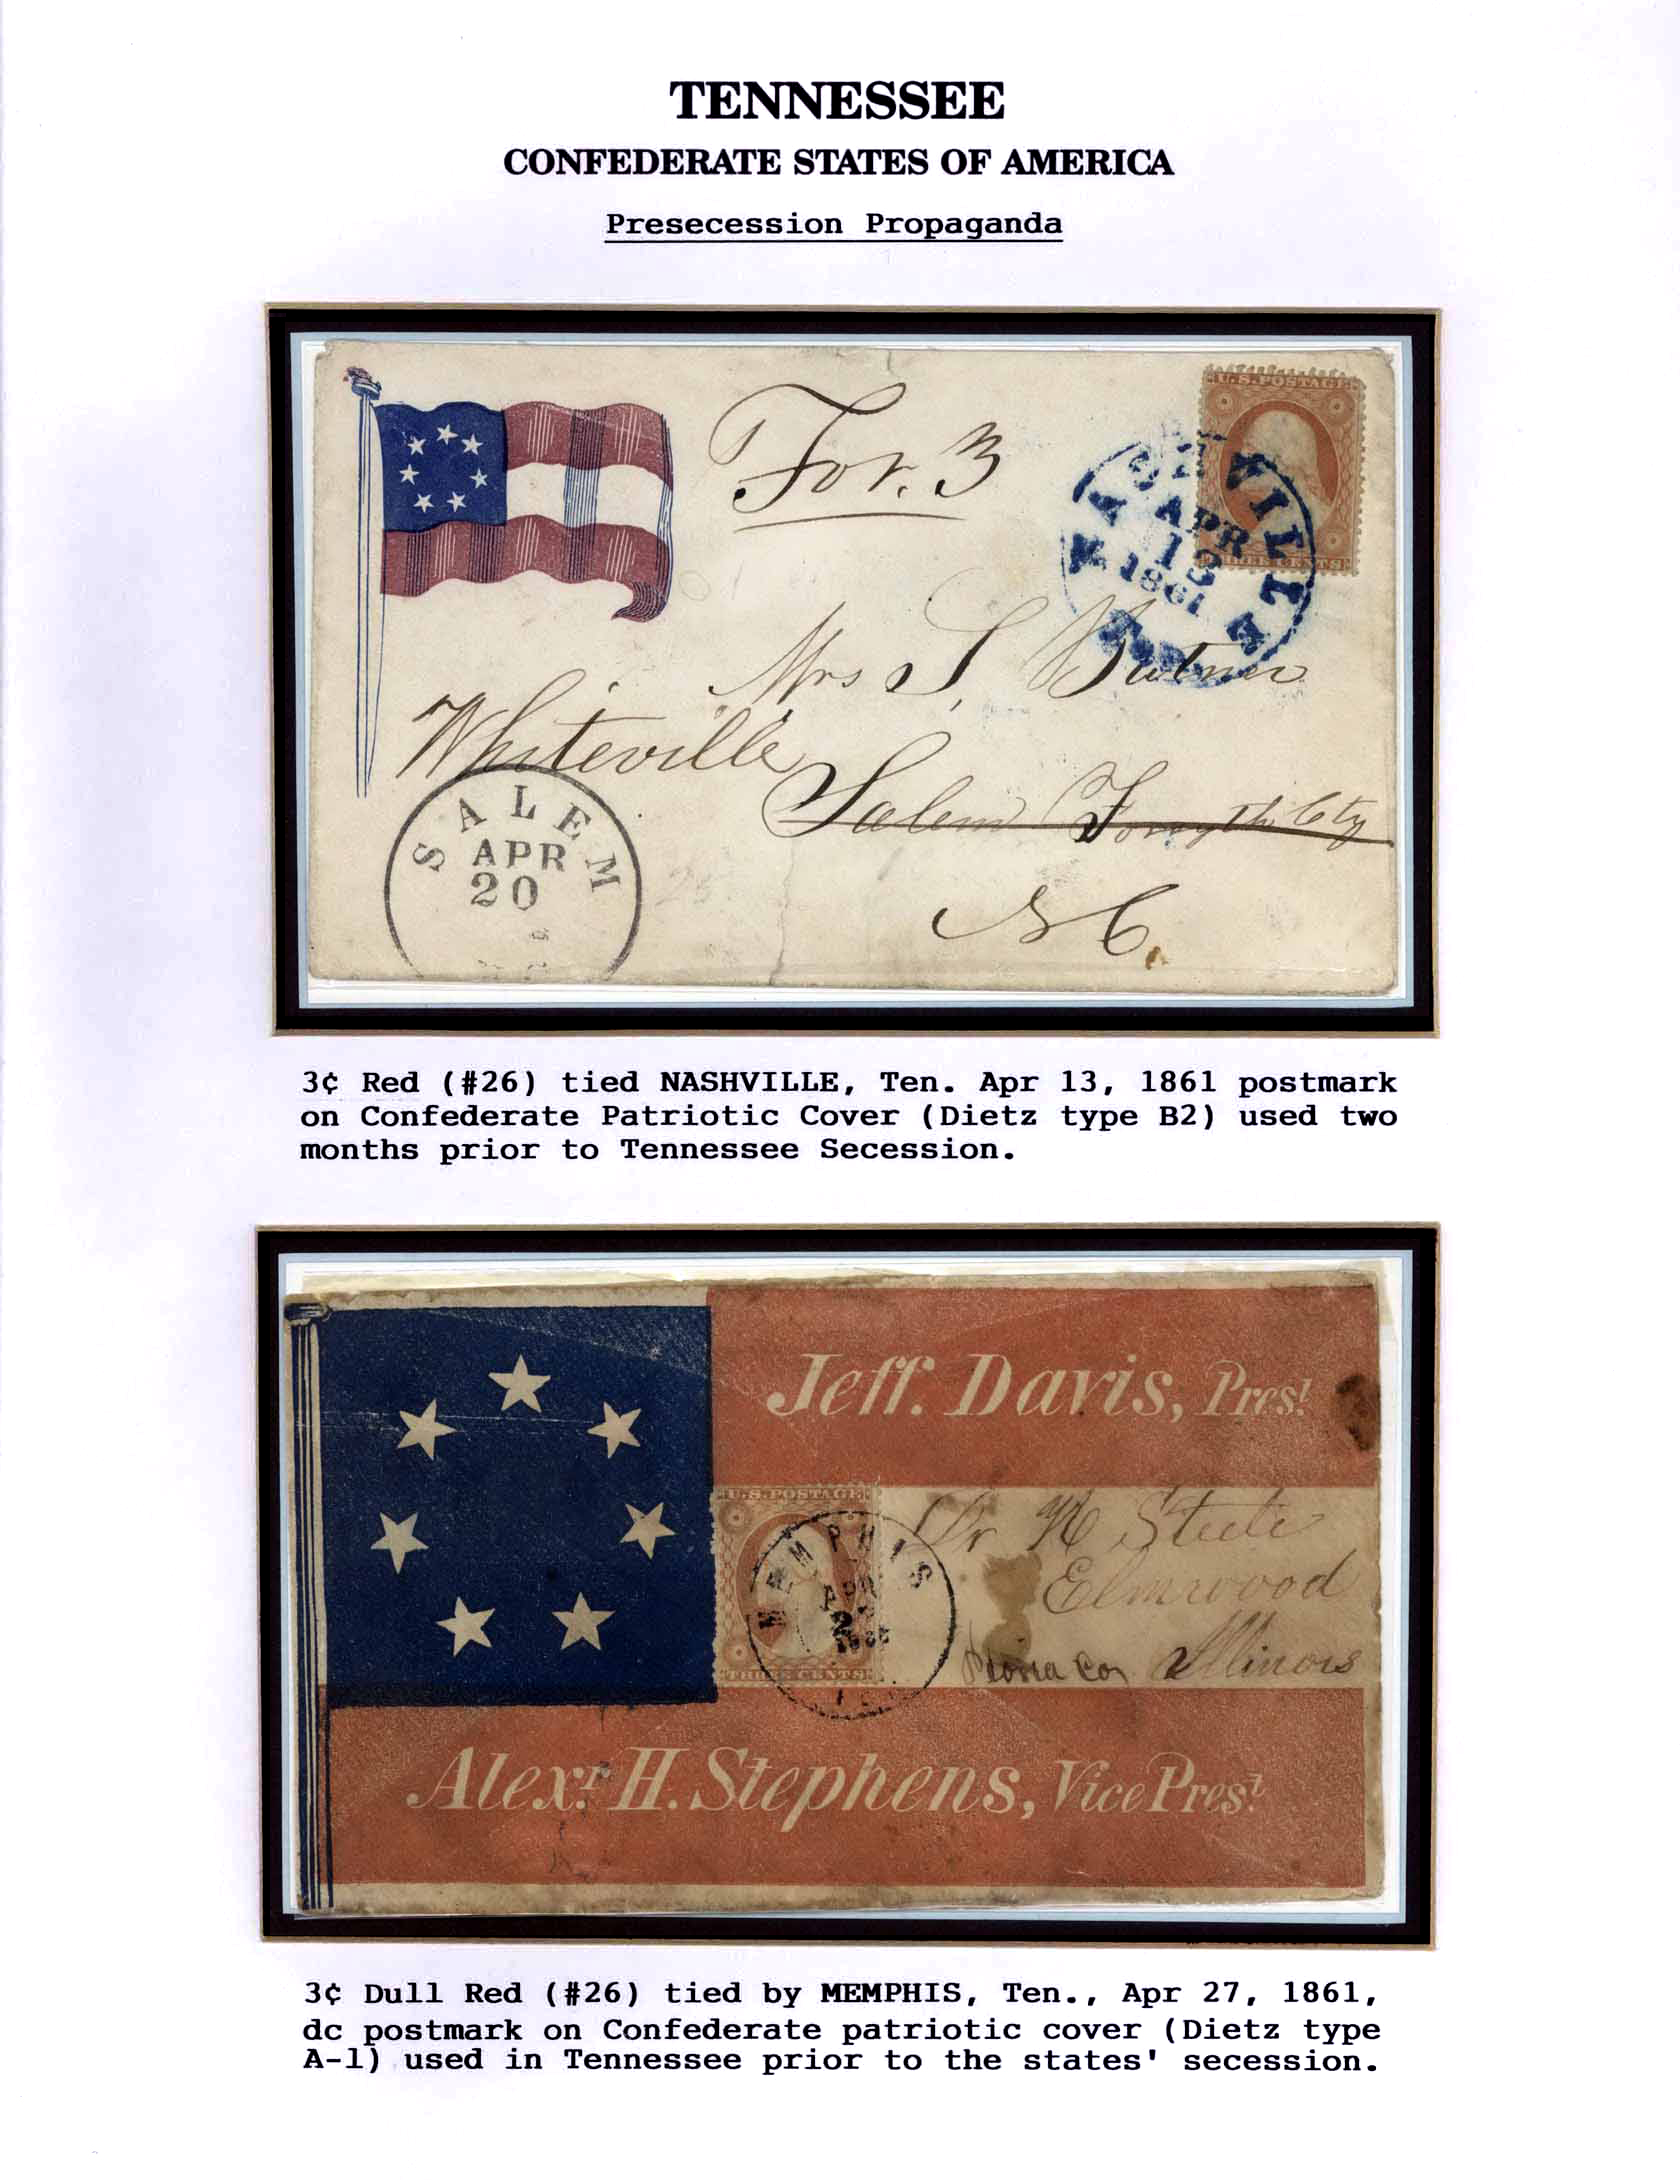 TENNESSEE
CONFEDERATE STATES OF AMERICA
Presecession Propaganda
For. 3
U.S. POSTAGE
THREE CENTS
NASHVILLE
APR
13
1861
Mrs S, Butner
Whiteville
Salem Forsyth Cty
N C.
SALEM
APR
20
3¢ Red (#26) tied NASHVILLE, Ten. Apr 13, 1861 postmark
on Confederate Patriotic Cover (Dietz type B2) used two
months prior to Tennessee Secession.
Jeff. Davis, Prest.
U.S. POSTAGE
THREE CENTS
MEMPHIS
APR
Dr N Steele
Elmwood
Peoria Co, Illinois
Alexr. H. Stephens, Vice Prest.
3¢ Dull Red (#26) tied by MEMPHIS, Ten., Apr 27, 1861,
dc postmark on Confederate patriotic cover (Dietz type
A-1) used in Tennessee prior to the states' secession.